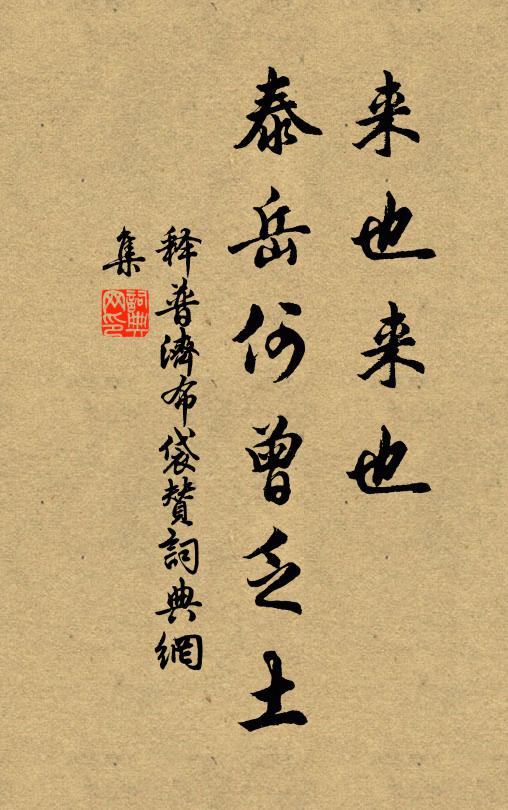 来也来也
泰岳何曾乏土
释普濟布袋賛詞典網
集
詞典网印